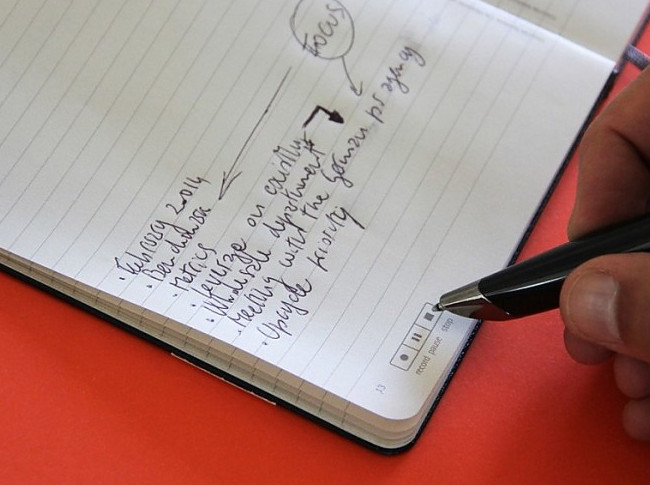 FOCUS
· February 2014
·
· Metrics
· Leverage on existing
· Wholesale department
· Meeting with the German pr agency
· Upcycle priority
record pause stop
33